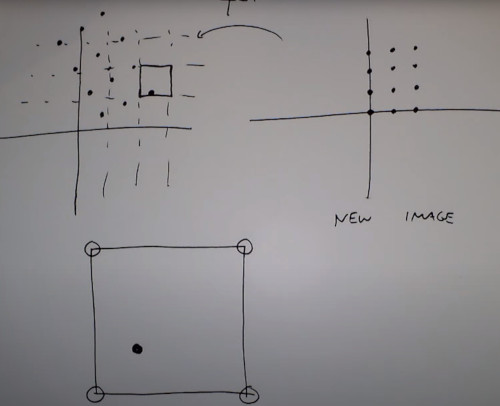 NEW IMAGE